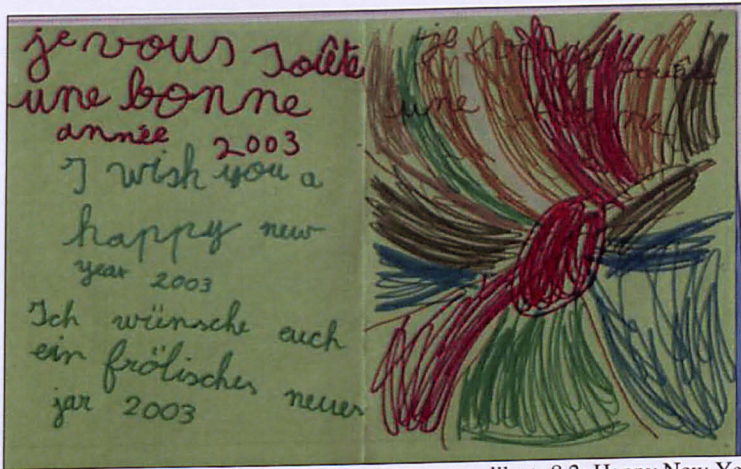 je vous souête
une bonne
année 2003
I wish you a
happy new
year 2003
Ich wünsche euch
ein frölisches neues
jar 2003
je
une
8.2. Happy New